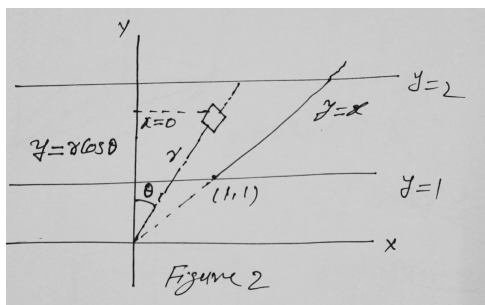 Y
y=2
x=0
y=x
y=rcosθ
r
θ
(1,1)
y=1
x
Figure 2